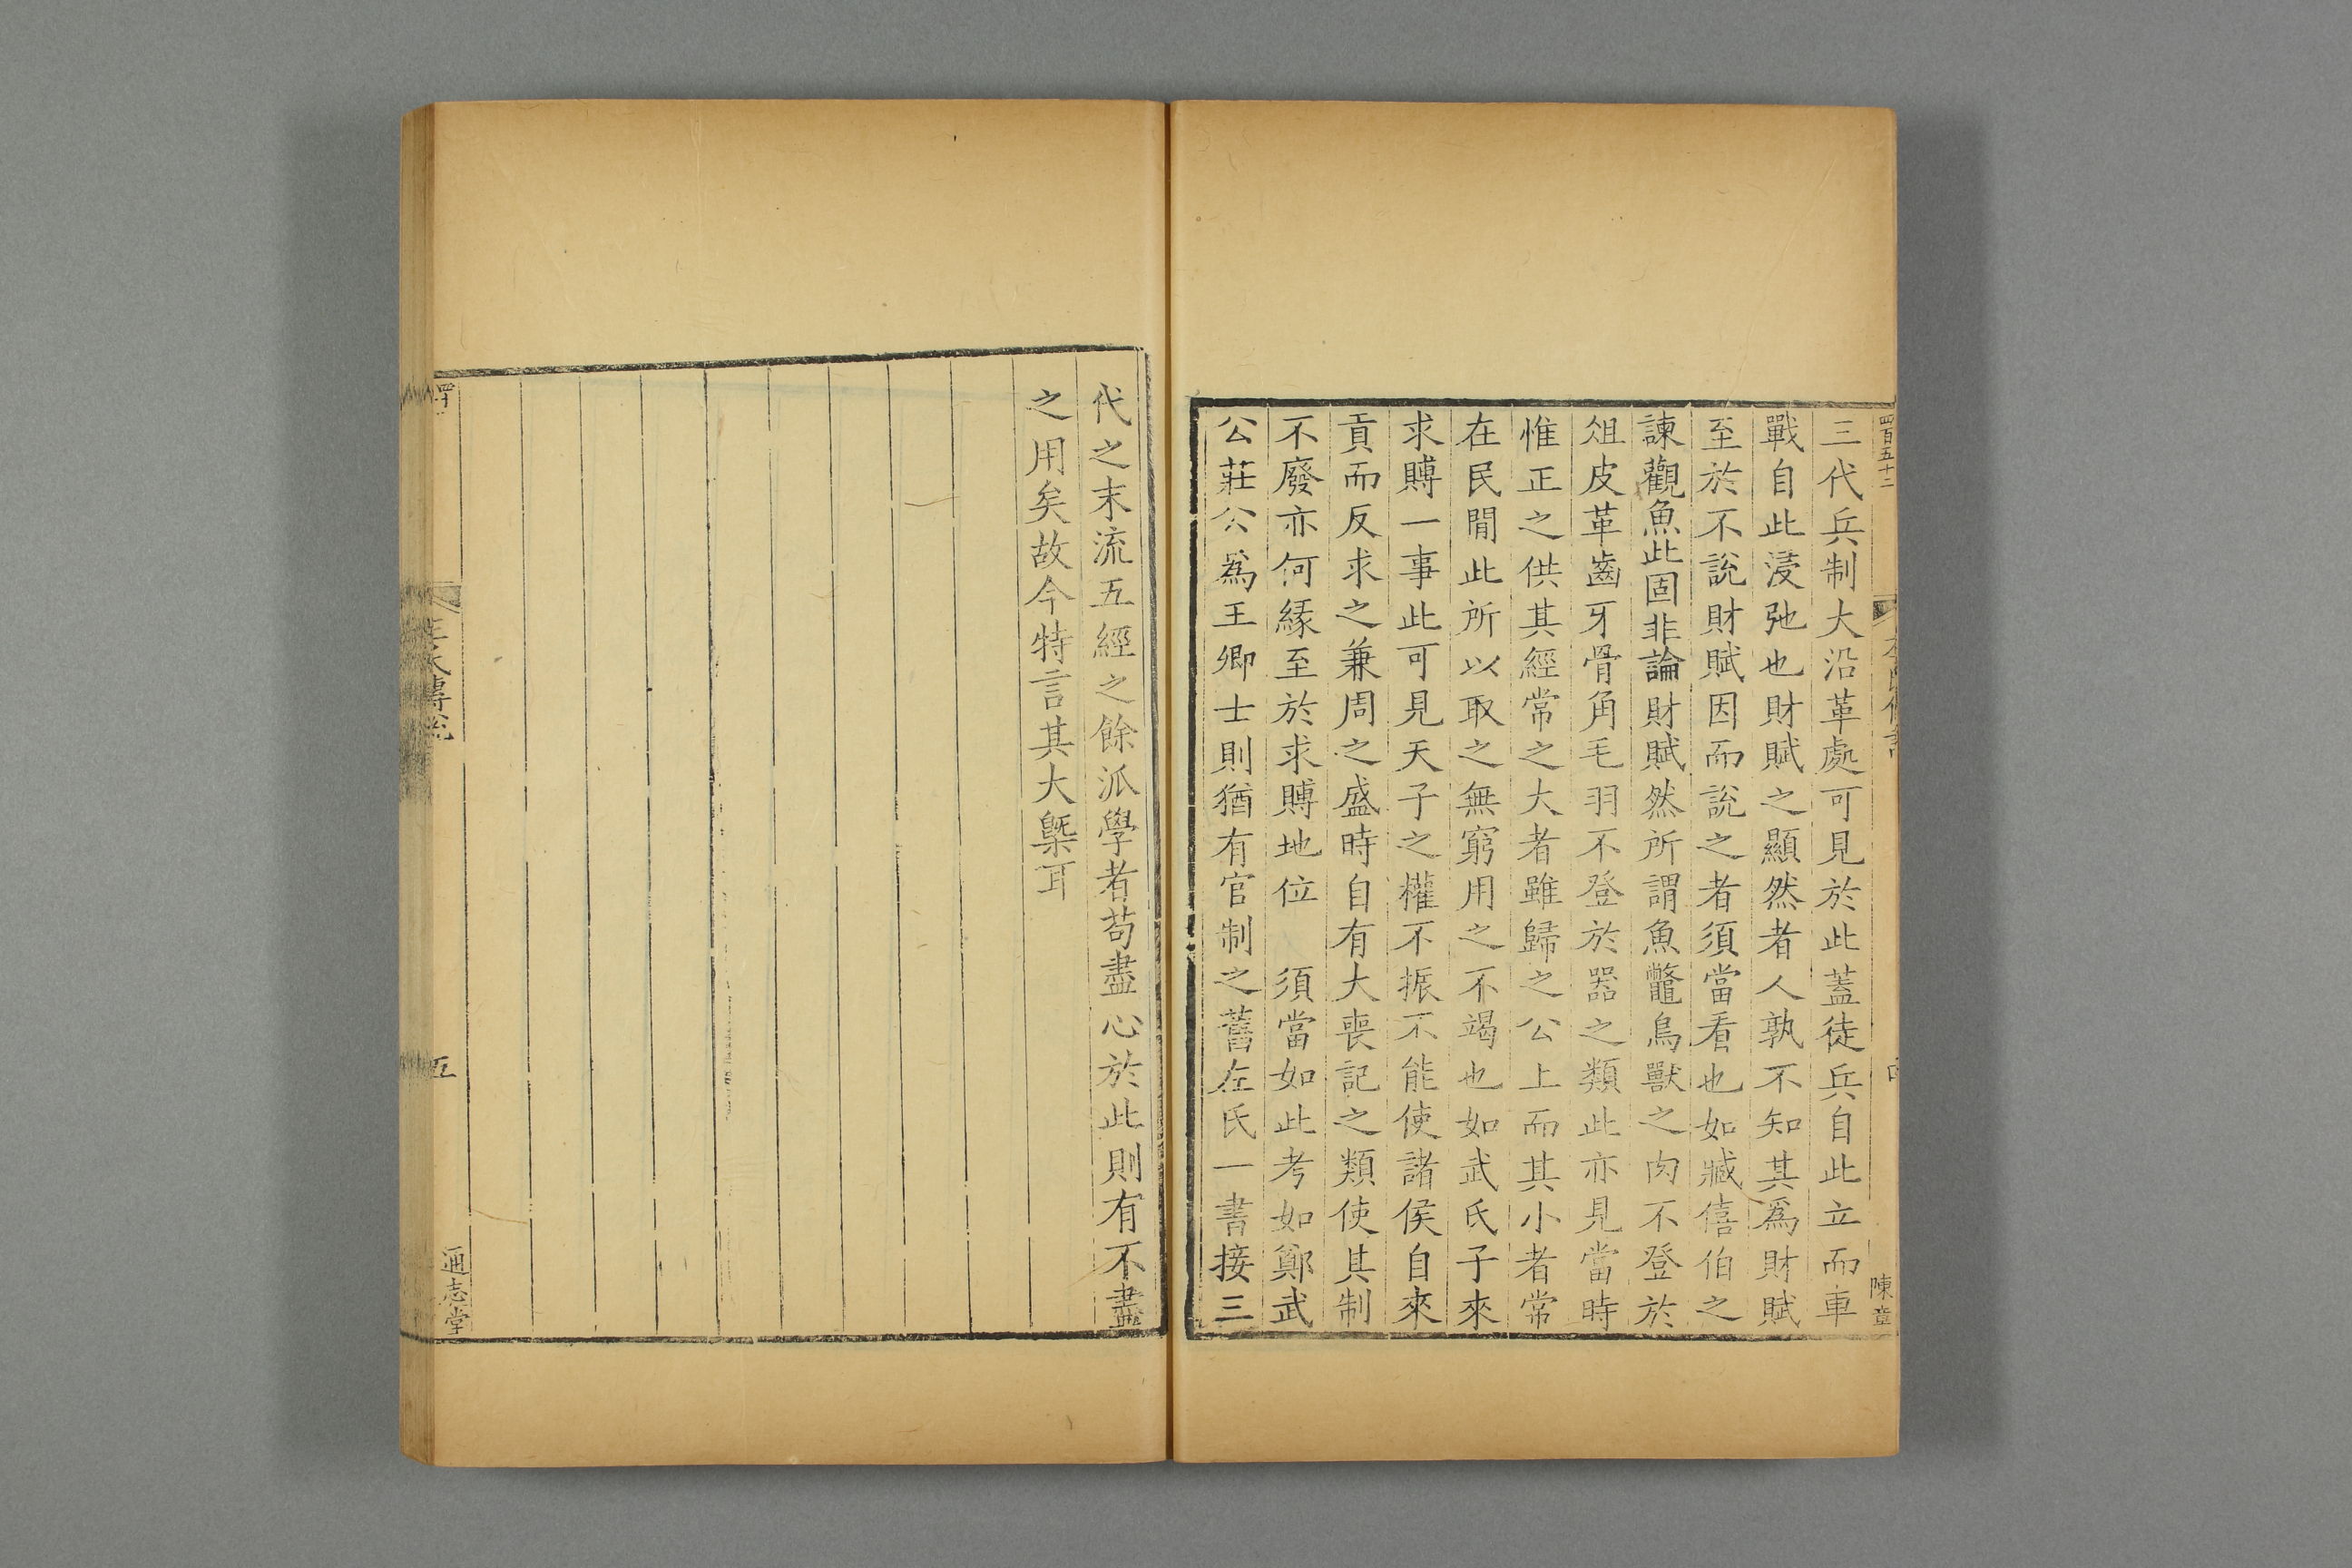 四百五十二
陳章
三代兵制大沿革處可見於此蓋徒兵自此立而車
戰自此浸弛也財賦之顯然者人孰不知其爲財賦
至於不說財賦因而說之者須當看也如臧僖伯之
諫觀魚此固非論財賦然所謂魚鼈鳥獸之肉不登於
俎皮革齒牙骨角毛羽不登於器之類此亦見當時
惟正之供其經常之大者雖歸之公上而其小者常
在民閒此所以取之無窮用之不竭也如武氏子來
求賻一事此可見天子之權不振不能使諸侯自來
貢而反求之兼周之盛時自有大喪記之類使其制
不廢亦何緣至於求賻地位 須當如此考如鄭武
公莊公爲王卿士則猶有官制之舊左氏一書接三
代之末流五經之餘派學者苟盡心於此則有不盡
之用矣故今特言其大槩耳
五
通志堂